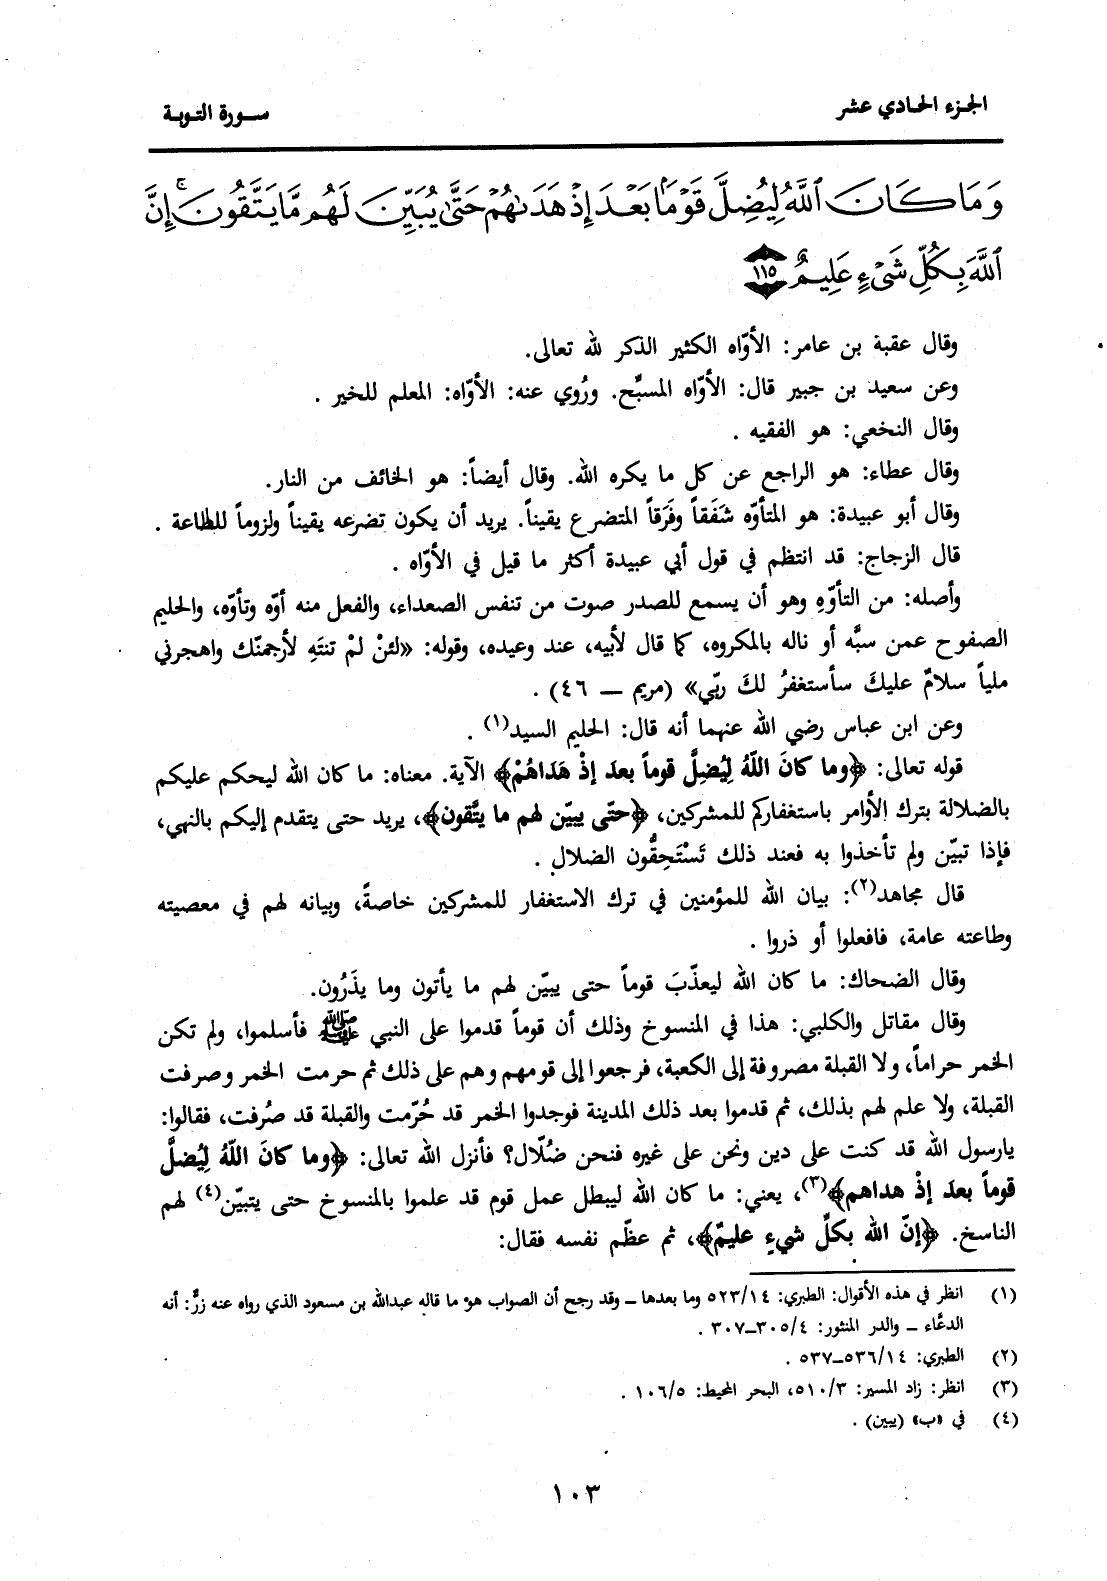 الجزء الحادي عشر
سورة التوبة
وَمَا كَانَ ٱللَّهُ لِيُضِلَّ قَوْمًۢا بَعْدَ إِذْ هَدَىٰهُمْ حَتَّىٰ يُبَيِّنَ لَهُم مَّا يَتَّقُونَ ۚ إِنَّ
ٱللَّهَ بِكُلِّ شَىْءٍ عَلِيمٌ ١١٥
وقال عقبة بن عامر: الأوّاه الكثير الذكر لله تعالى.
وعن سعيد بن جبير قال: الأوّاه المسبِّح. ورُوي عنه: الأوّاه: المعلم للخير .
وقال النخعي: هو الفقيه .
وقال عطاء: هو الراجع عن كل ما يكره الله. وقال أيضاً: هو الخائف من النار.
وقال أبو عبيدة: هو المتأوّه شَفَقاً وفَرَقاً المتضرع يقيناً. يريد أن يكون تضرعه يقيناً ولزوماً للطاعة .
قال الزجاج: قد انتظم في قول أبي عبيدة أكثر ما قيل في الأوّاه .
وأصله: من التأوّهِ وهو أن يسمع للصدر صوت من تنفس الصعداء، والفعل منه أوّه وتأوّه، والحليم
الصفوح عمن سبَّه أو ناله بالمكروه، كما قال لأبيه، عند وعيده، وقوله: «لئنْ لمْ تنتَهِ لأرجمنّك واهجرني
ملياً سلامٌ عليكَ سأستغفرُ لكَ ربّي» (مريم ـ ٤٦) .
وعن ابن عباس رضي الله عنهما أنه قال: الحليم السيد(١) .
قوله تعالى: ﴿وما كانَ اللّهُ لِيُضِلَّ قوماً بعدَ إذْ هَدَاهُمْ﴾ الآية. معناه: ما كان الله ليحكم عليكم
بالضلالة بترك الأوامر باستغفاركم للمشركين، ﴿حتّى يبيّن لهم ما يتَّقون﴾، يريد حتى يتقدم إليكم بالنهي،
فإذا تبيّن ولم تأخذوا به فعند ذلك تَسْتَحِقُّون الضلال .
قال مجاهد(٢): بيان الله للمؤمنين في ترك الاستغفار للمشركين خاصةً، وبيانه لهم في معصيته
وطاعته عامة، فافعلوا أو ذروا .
وقال الضحاك: ما كان الله ليعذّبَ قوماً حتى يبيّن لهم ما يأتون وما يذَرُون.
وقال مقاتل والكلبي: هذا في المنسوخ وذلك أن قوماً قدموا على النبي ﷺ فأسلموا، ولم تكن
الخمر حراماً، ولا القبلة مصروفة إلى الكعبة، فرجعوا إلى قومهم وهم على ذلك ثم حرمت الخمر وصرفت
القبلة، ولا علم لهم بذلك، ثم قدموا بعد ذلك المدينة فوجدوا الخمر قد حُرّمت والقبلة قد صُرفت، فقالوا:
يارسول الله قد كنت على دين ونحن على غيره فنحن ضُلّال؟ فأنزل الله تعالى: ﴿وما كانَ اللّهُ لِيُضلَّ
قوماً بعدَ إذْ هداهم﴾(٣)، يعني: ما كان الله ليبطل عمل قوم قد علموا بالمنسوخ حتى يتبيّن(٤) لهم
الناسخ. ﴿إنّ الله بكلِّ شيءٍ عليمٌ﴾، ثم عظّم نفسه فقال:
(١) انظر في هذه الأقوال: الطبري: ٥٢٣/١٤ وما بعدها ـ وقد رجح أن الصواب هو ما قاله عبدالله بن مسعود الذي رواه عنه زرٌّ: أنه
الدعَّاء ـ والدر المنثور: ٣٠٥/٤ـ٣٠٧ .
(٢) الطبري: ٥٣٦/١٤ـ٥٣٧ .
(٣) انظر: زاد المسير: ٥١٠/٣، البحر المحيط: ١٠٦/٥ .
(٤) في «ب» (يبين) .
١٠٣